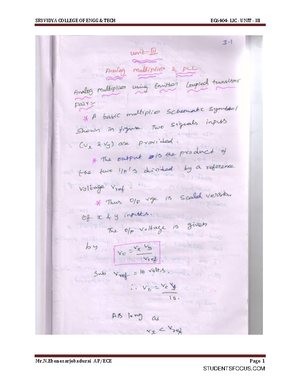 SRIVIDYA COLLEGE OF ENGG & TECH EC6404- LIC -UNIT - III
3-1
Unit-III
Analog multiplier & PLL
Analog multiplier using Emitter Coupled transistor
pair:-
* A basic multiplier schematic symbol
shown in figure. Two signals inputs
(Vx & Vy) are provided.
* The output is the product of
the two i/p's divided by a reference
voltage Vref.
* Thus o/p vge is scaled version
of x & y inputs.
The o/p voltage is given
by V0 = Vx Vy / Vref
Sub Vref = 10 volts.
∴ V0 = Vx Vy / 10.
As long as
Vx < Vref
Mr.N.Ebanezar jebadurai AP/ECE Page 1
STUDENTSFOCUS.COM